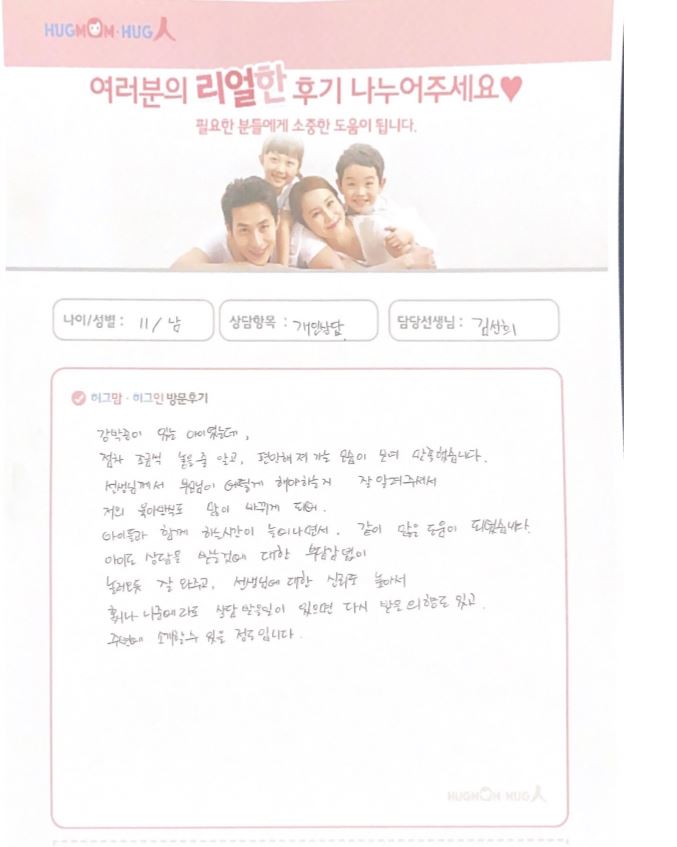 HUGMOM·HUG人
여러분의 리얼한 후기 나누어주세요♥
필요한 분들에게 소중한 도움이 됩니다.
나이/성별 : 11 / 남
상담항목 : 개인상담
담당선생님 : 김선희
허그맘·허그인 방문후기
강박증이 있는 아이였는데,
점차 조금씩 놓을 줄 알고, 편안해져 가는 모습이 보여 만족했습니다.
선생님께서 부모님이 어떻게 해야하는지 잘 알려주셔서
저의 육아방식도 많이 바뀌게 되어.
아이들과 함께 하는시간이 늘어나면서, 같이 많은 도움이 되었습니다.
아이도 상담을 받는것에 대한 부담감없이
놀러오듯 잘 와주고, 선생님에 대한 신뢰도 높아서
혹시나 나중에라도 상담 받을일이 있으면 다시 받을 의향도 있고.
주변에 소개할수 있을 정도입니다.
HUGMOM HUG人